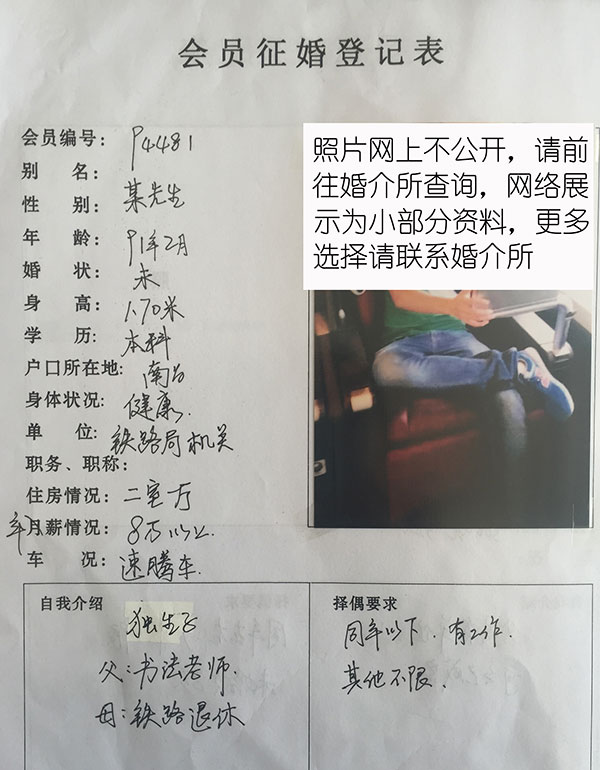 会员征婚登记表
会员编号：94481
别 名：某先生
性 别：
年 龄：91年2月
婚 状：未
身 高：1.70米
学 历：本科
户口所在地：南昌
身体状况：健康
单 位：铁路局机关
职务、职称：
住房情况：二室厅
年月薪情况：8万以上
车 况：速腾车.
照片网上不公开，请前
往婚介所查询，网络展
示为小部分资料，更多
选择请联系婚介所
自我介绍
独生子
父：书法老师.
母：铁路退休
择偶要求
同年以下．有工作.
其他不限.